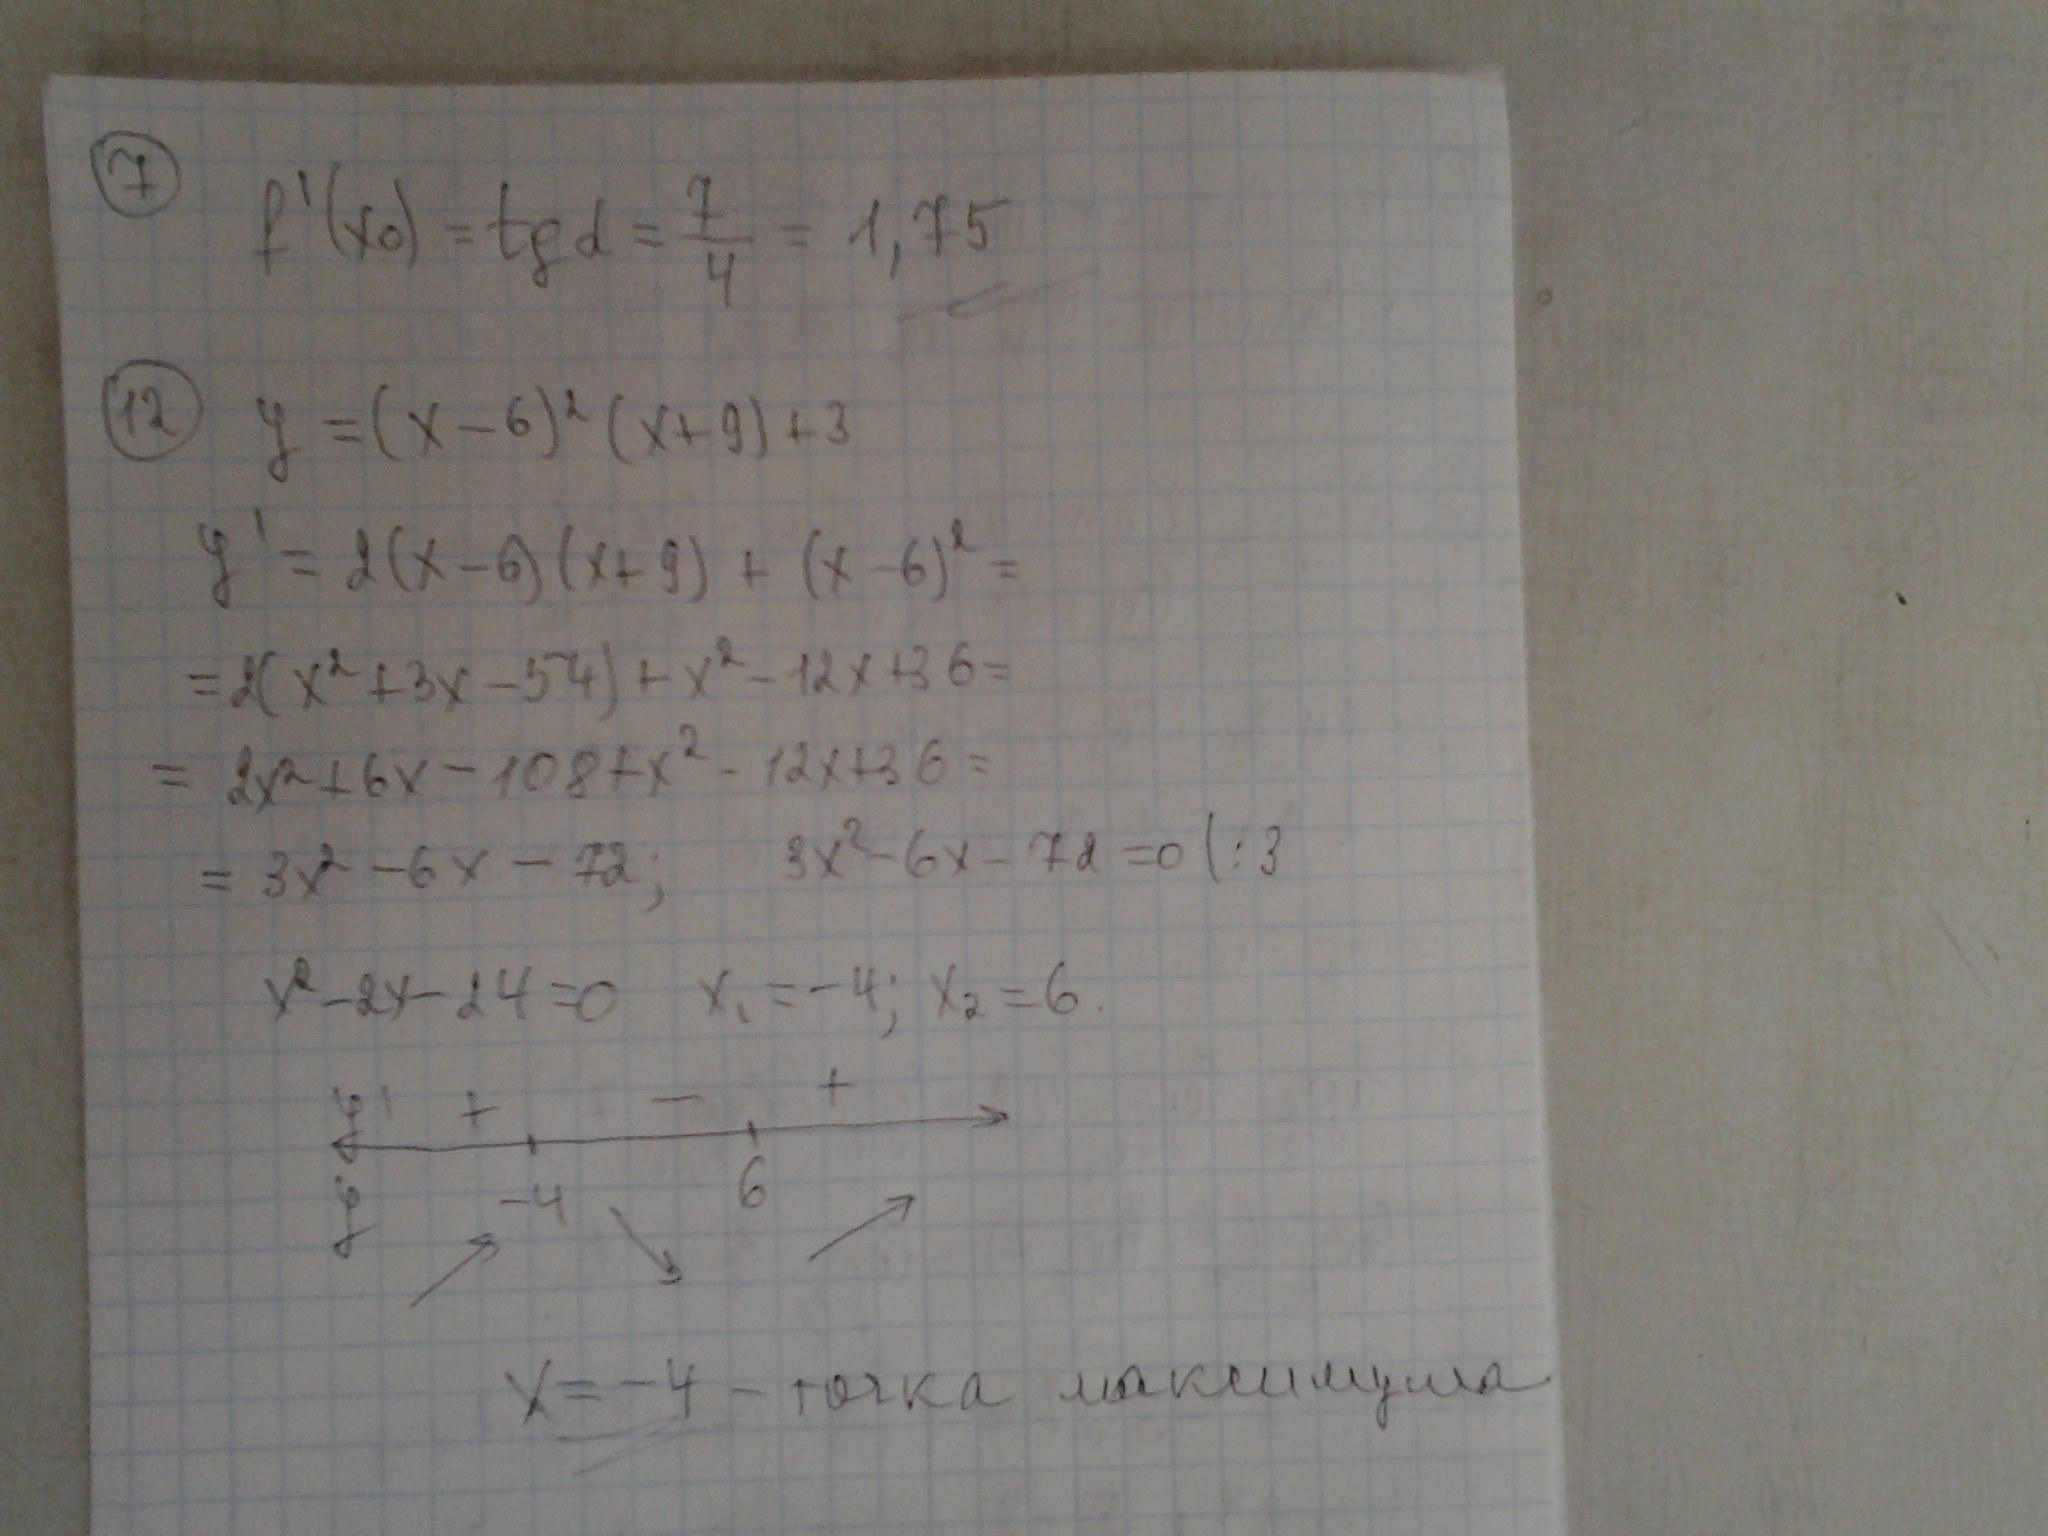 7 f'(x0) = tgα = 7/4 = 1,75
12 y = (x-6)² (x+9) + 3
y' = 2(x-6)(x+9) + (x-6)² =
= 2(x² + 3x - 54) + x² - 12x + 36 =
= 2x² + 6x - 108 + x² - 12x + 36 =
= 3x² - 6x - 72; 3x² - 6x - 72 = 0 (:3
x² - 2x - 24 = 0 x₁ = -4; x₂ = 6.
y' + - +
y -4 6
x = -4 - точка максимума